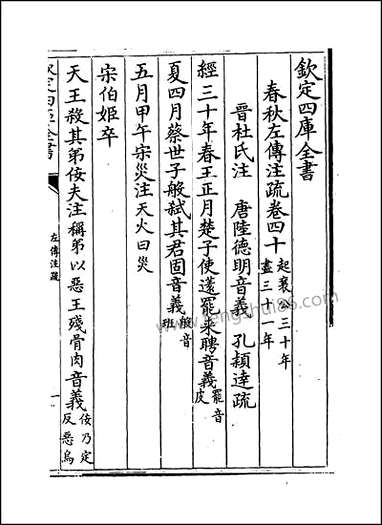 欽定四庫全書
春秋左傳注疏卷四十起襄公三十年盡三十一年
晉杜氏注 唐陸德明音義 孔穎達疏
經三十年春王正月楚子使薳罷來聘音義罷音皮
夏四月蔡世子般弑其君固音義般音班
五月甲午宋災注天火曰災
宋伯姬卒
天王殺其弟佞夫注稱弟以惡王殘骨肉音義佞乃定反惡烏
欽定四庫全書
左傳注疏
一